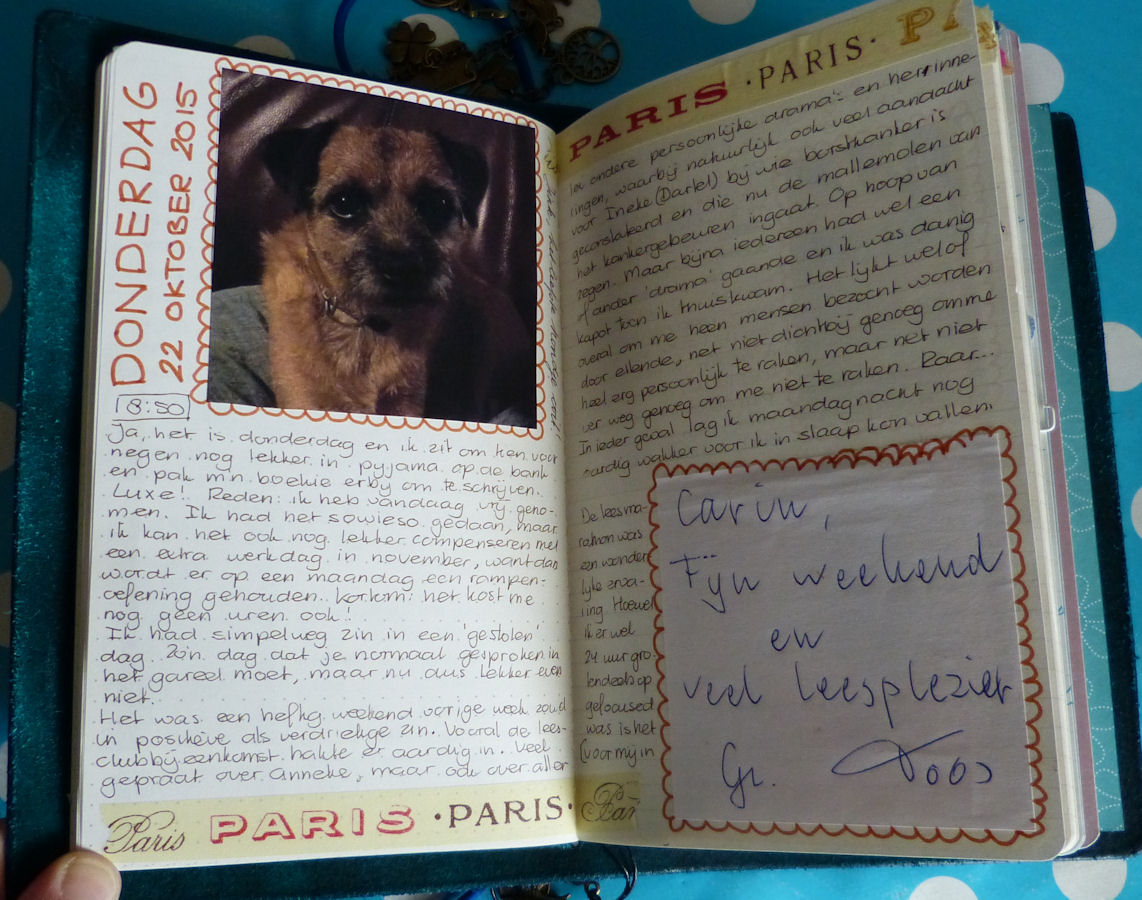 DONDERDAG
22 OKTOBER 2015
18:50
Ja, het is donderdag en ik zit om ken voor
negen nog lekker in pyjama op de bank
en pak m'n boekie erby om te schrijven.
Luxe! Reden: ik heb vandaag vrij geno-
men. Ik had het sowieso gedaan, maar
ik kan het ook nog lekker compenseren met
een extra werkdag in november, want dan
wordt er op een maandag een rampen-
oefening gehouden. Kortom: het kost me
nog geen uren ook!
Ik had simpelweg zin in een 'gestolen'
dag. Zo'n dag dat je normaal gesproken in
het gareel moet, maar nu dus lekker even
niet.
Het was een heftig weekend vorige week zowel
in positieve als verdrietige zin. Vooral de lees-
clubbijeenkomst hakte er aardig in. Veel
gepraat over Anneke, maar ook over aller
Paris PARIS ·PARIS· Par
PARIS ·PARIS· PA
lei andere persoonlijke drama's en herinne-
ringen, waarbij natuurlijk ook veel aandacht
voor Ineke (Dartel) bij wie borstkanker is
geconstateerd en die nu de mallemolen van
het kankergebeuren ingaat. Op hoop van
zegen. Maar bijna iedereen had wel een
of ander 'drama' gaande en ik was danig
kapot toen ik thuiskwam. Het lijkt wel of
overal om me heen mensen bezocht worden
door ellende, net niet dichtbij genoeg om me
heel erg persoonlijk te raken, maar net niet
ver weg genoeg om me niet te raken. Raar...
In ieder geval lag ik maandagnacht nog
aardig wakker voor ik in slaap kon vallen.
De leesma-
rathon was
een wonder
lijke erva-
ring. Hoewel
ik er wel
24 uur gro-
tendeels op
gefocused
was is het
(voor mij in
Carin,
Fijn weekend
en
veel leesplezier
Gr. Toos